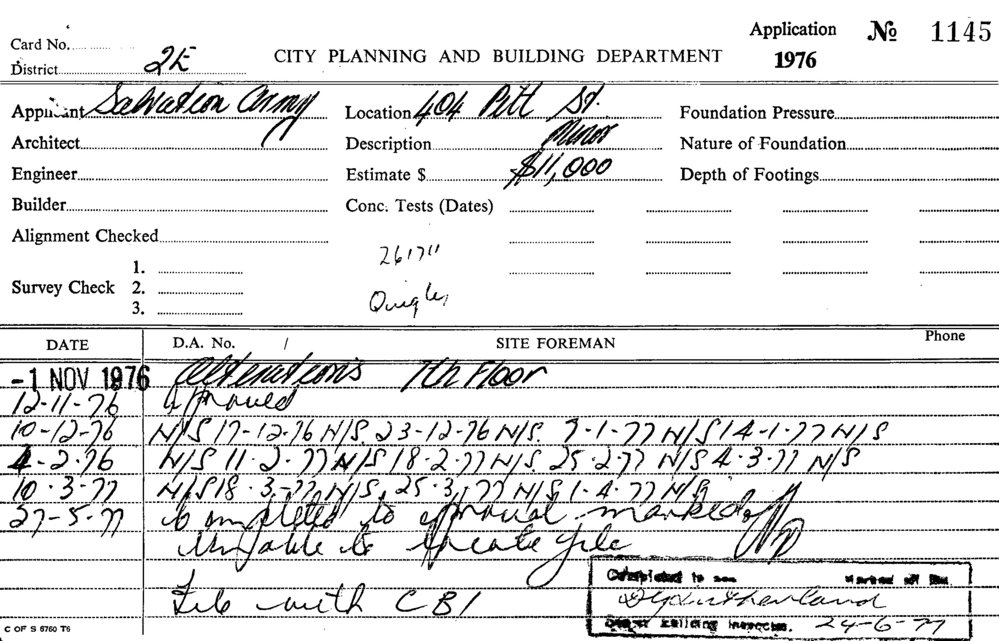 Application № 1145
1976
Card No.
District 2E
CITY PLANNING AND BUILDING DEPARTMENT
Applicant Salvation Army
Location 404 Pitt St.
Foundation Pressure
Architect
Description Minor
Nature of Foundation
Engineer
Estimate $ $11,000
Depth of Footings
Builder
Conc. Tests (Dates)
Alignment Checked
261711
Survey Check
1.
2.
3.
Quigley
DATE D.A. No. / SITE FOREMAN Phone
-1 NOV 1976 Alterations 7th Floor
12-11-76 Approved
10-12-76 N/S 17-12-76 N/S. 23-12-76 N/S. 7-1-77 N/S 14-1-77 N/S
4-2-76 N/S 11-2-77 N/S 18-2-77 N/S. 25-2-77 N/S 4-3-77 N/S
10-3-77 N/S 18-3-77 N/S. 25-3-77 N/S 1-4-77 N/S
27-5-77 Completed to approval marked off
Unable to locate file
File with CBI
Completed to Marked off
24-6-77
C OF S 6760 T6